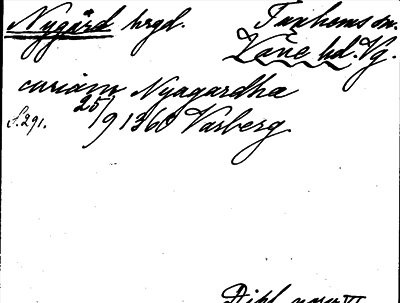 Nygård hrgd. Tunhems sn.
Väne hd. Vg.
curiam Nyagardha
S. 291. 25/9 1360 Varberg
Dipl.